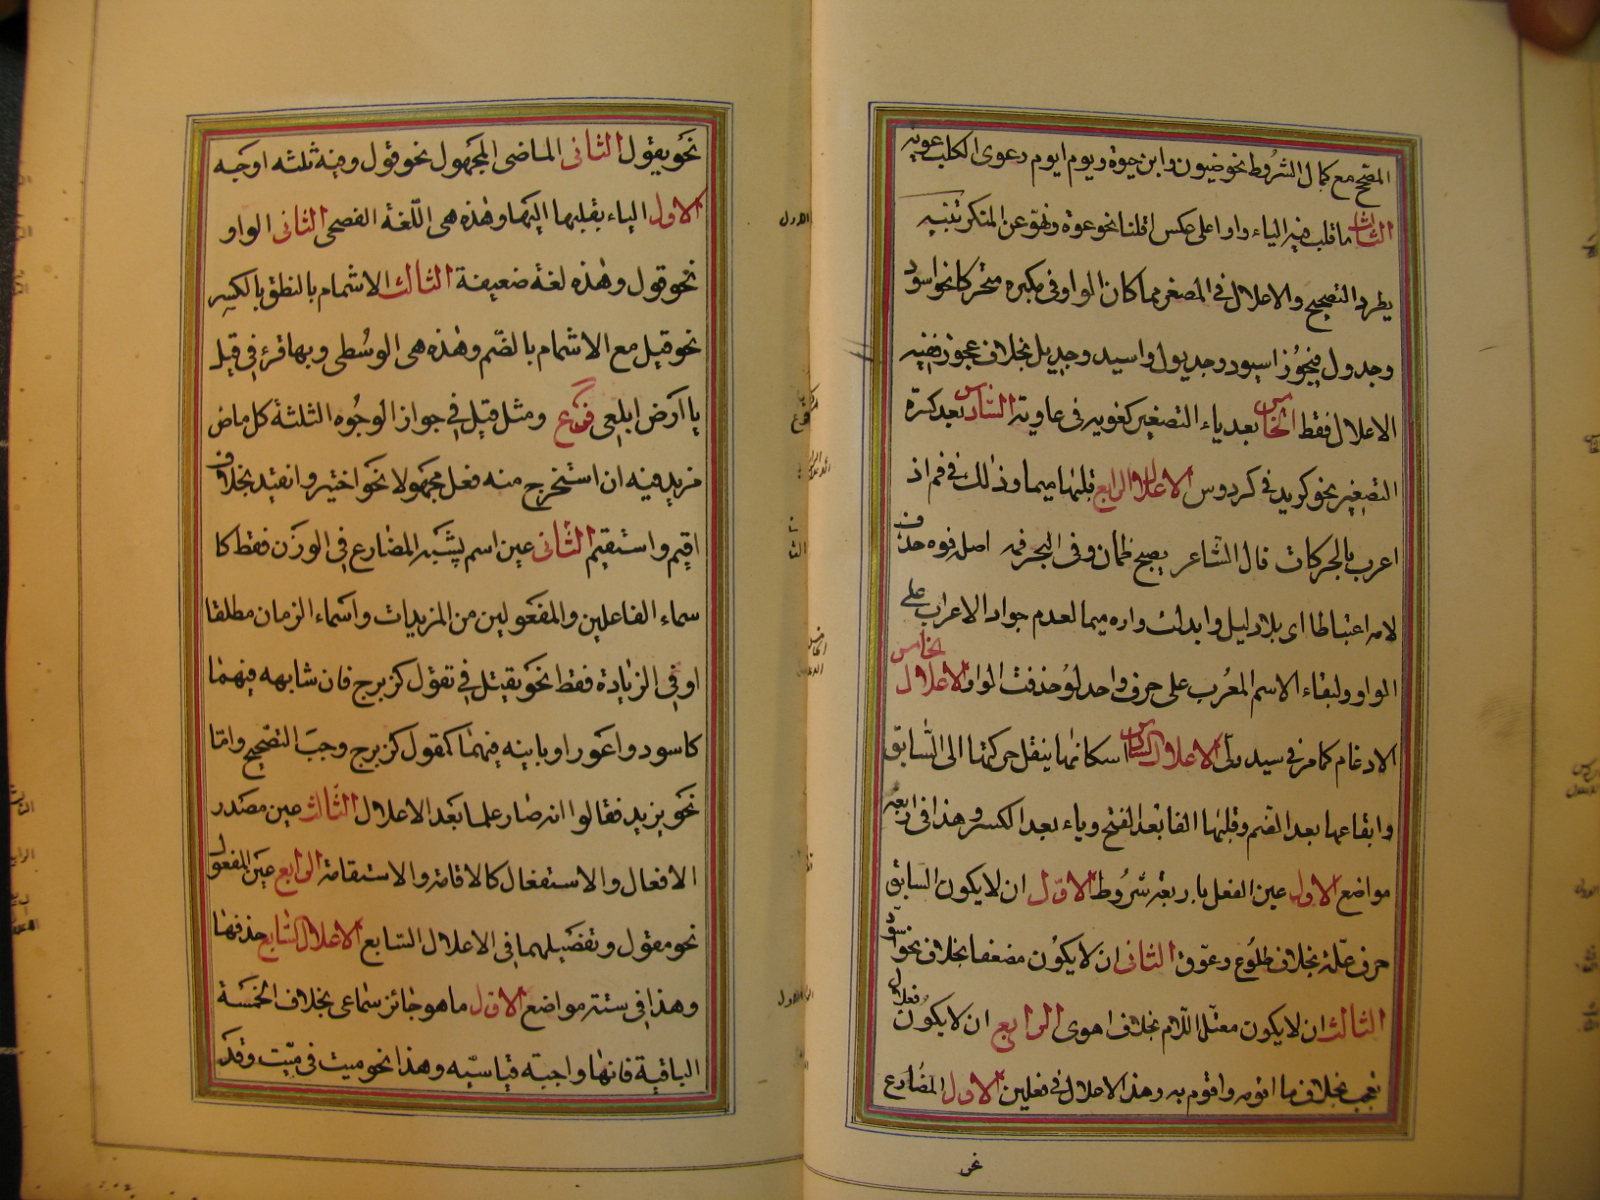 المصحح مع كمال الشروط نحو ضيون وابن حيوة ويوم ايوم وعوى الكلب عوية
الثالث ما قلب فيه الياء واوا على عكس اقلنا نحو عوة ونهو عن المنكر تنبيه
يطرد التصحيح والاعلال في المصغر مما كان الواو في مكبره متحركا نحو اسود
وجدول فيجوز اسيود وجديول واسيد وجديل بخلاف عجوز ففيه
الاعلال فقط الخامس بعد ياء التصغير كغويه في غاوية السادس بعد كسرة
التصغير نحو كريد في كردوس الاعلال الرابع قلبها ميما وذلك في فم اذ
اعرب بالحركات قال الشاعر يصبح ظمان وفى البحر فمه اصله فوه حذف
لامه اعتباطا اى بلا دليل وابدلت واوه ميما لعدم جواد الاعراب على
الواو ولبقاء الاسم المعرب على حرف واحد لو حذفت الواو الاعلال الخامس
الادغام كما مر في سيد وطى الاعلال السادس اسكانها ينقل حركتها الى السابق
وابقاءها بعد الضم وقلبها الفا بعد الفتح وياء بعد الكسر وهذا في اربعة
مواضع الاول عين الفعل باربعة شروط الاول ان لا يكون السابق
حرف علة بخلاف طلوع وعوق الثانى ان لا يكون مضعفا بخلاف نحو اسود
الثالث ان لا يكون معتل اللام بخلاف اهوى الرابع ان لا يكون فعل
تعجب بخلاف ما اقومه واقوم به وهذا الاعلال في فعلين الاول المضارع
نحو
نحو يقول الثانى الماضى المجهول نحو قول وفيه ثلثه اوجه
الاول الياء بقلبها اليها وهذه هى اللغة الفصحى الثانى الواو
نحو قول وهذه لغة ضعيفة الثالث الاشمام بالنطق بالكسر
نحو قيل مع الاشمام بالضم وهذه هى الوسطى وبها قرئ في قيل
يا ارض ابلعى فرع ومثل قيل في جواز الوجوه الثلثة كل ماض
مزيد فيه ان استخرج منه فعل مجهولا نحو اختير وانقيد بخلاف
اقيم واستقيم الثانى عين اسم يشبه المضارع في الوزن فقط كا
سماء الفاعلين والمفعولين من المزيدات واسماء الزمان مطلقا
او في الزيادة فقط نحو تقيل في تقول كزبرج فان شابهه فيهما
كاسود واعور او باينه فيهما كمقول كزبرج وجب التصحيح واما
نحو يزيد فقالوا انه صار علما بعد الاعلال الثالث عين مصدر
الافعال والاستفعال كالاقامة والاستقامة الرابع عين المفعول
نحو مقول وتفصيلهما في الاعلال السابع الاعلال السابع حذفها
وهذا في ستة مواضع الاول ما هو جائز سماعى بخلاف الخمسة
الباقية فانها واجبة قياسيه وهذا نحو ميت في ميت وقد